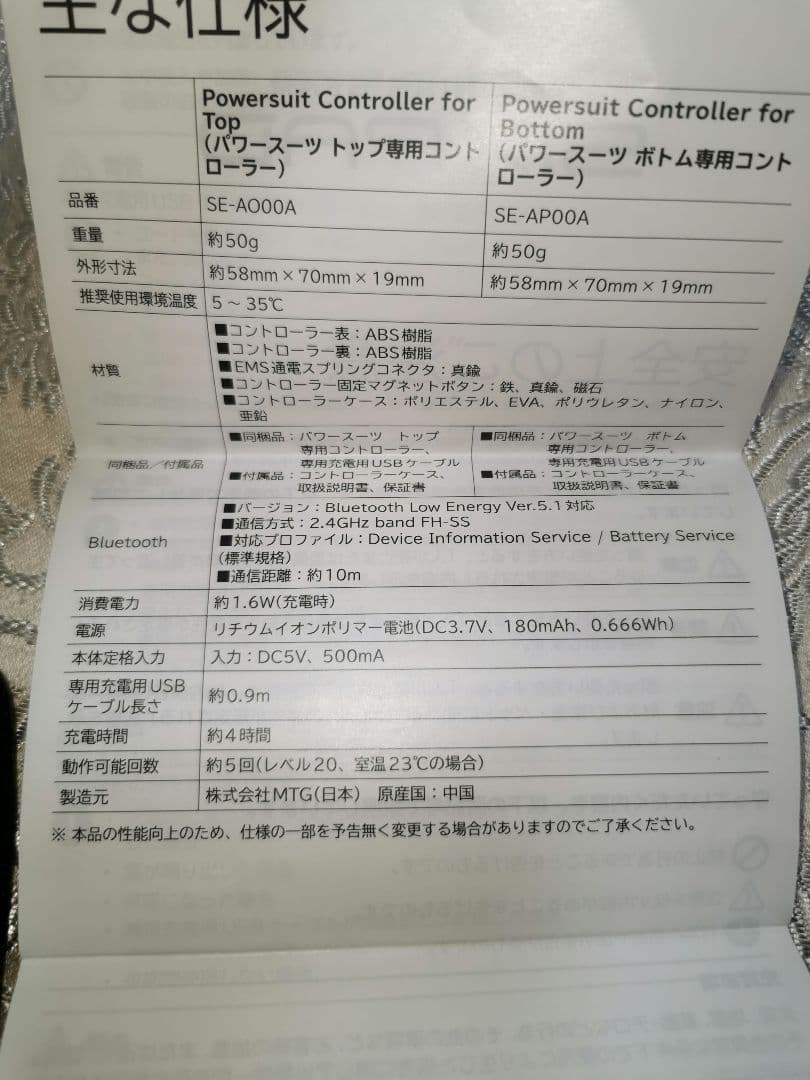 主な仕様
Powersuit Controller for
Top
（パワースーツ トップ専用コント
ローラー）
Powersuit Controller for
Bottom
（パワースーツ ボトム専用コント
ローラー）
品番
SE-AO00A
SE-AP00A
重量
約50g
約50g
外形寸法
約58mm×70mm×19mm
約58mm×70mm×19mm
推奨使用環境温度
5～35℃
材質
■コントローラー表：ABS樹脂
■コントローラー裏：ABS樹脂
■EMS通電スプリングコネクタ：真鍮
■コントローラー固定マグネットボタン：鉄、真鍮、磁石
■コントローラーケース：ポリエステル、EVA、ポリウレタン、ナイロン、
亜鉛
同梱品／付属品
■同梱品：パワースーツ トップ
専用コントローラー、
専用充電用USBケーブル
■付属品：コントローラーケース、
取扱説明書、保証書
■同梱品：パワースーツ ボトム
専用コントローラー、
専用充電用USBケーブル
■付属品：コントローラーケース、
取扱説明書、保証書
Bluetooth
■バージョン：Bluetooth Low Energy Ver.5.1対応
■通信方式：2.4GHz band FH-SS
■対応プロファイル：Device Information Service / Battery Service
（標準規格）
■通信距離：約10m
消費電力
約1.6W（充電時）
電源
リチウムイオンポリマー電池（DC3.7V、180mAh、0.666Wh）
本体定格入力
入力：DC5V、500mA
専用充電用USB
ケーブル長さ
約0.9m
充電時間
約4時間
動作可能回数
約5回（レベル20、室温23℃の場合）
製造元
株式会社MTG（日本） 原産国：中国
※ 本品の性能向上のため、仕様の一部を予告無く変更する場合がありますのでご了承ください。